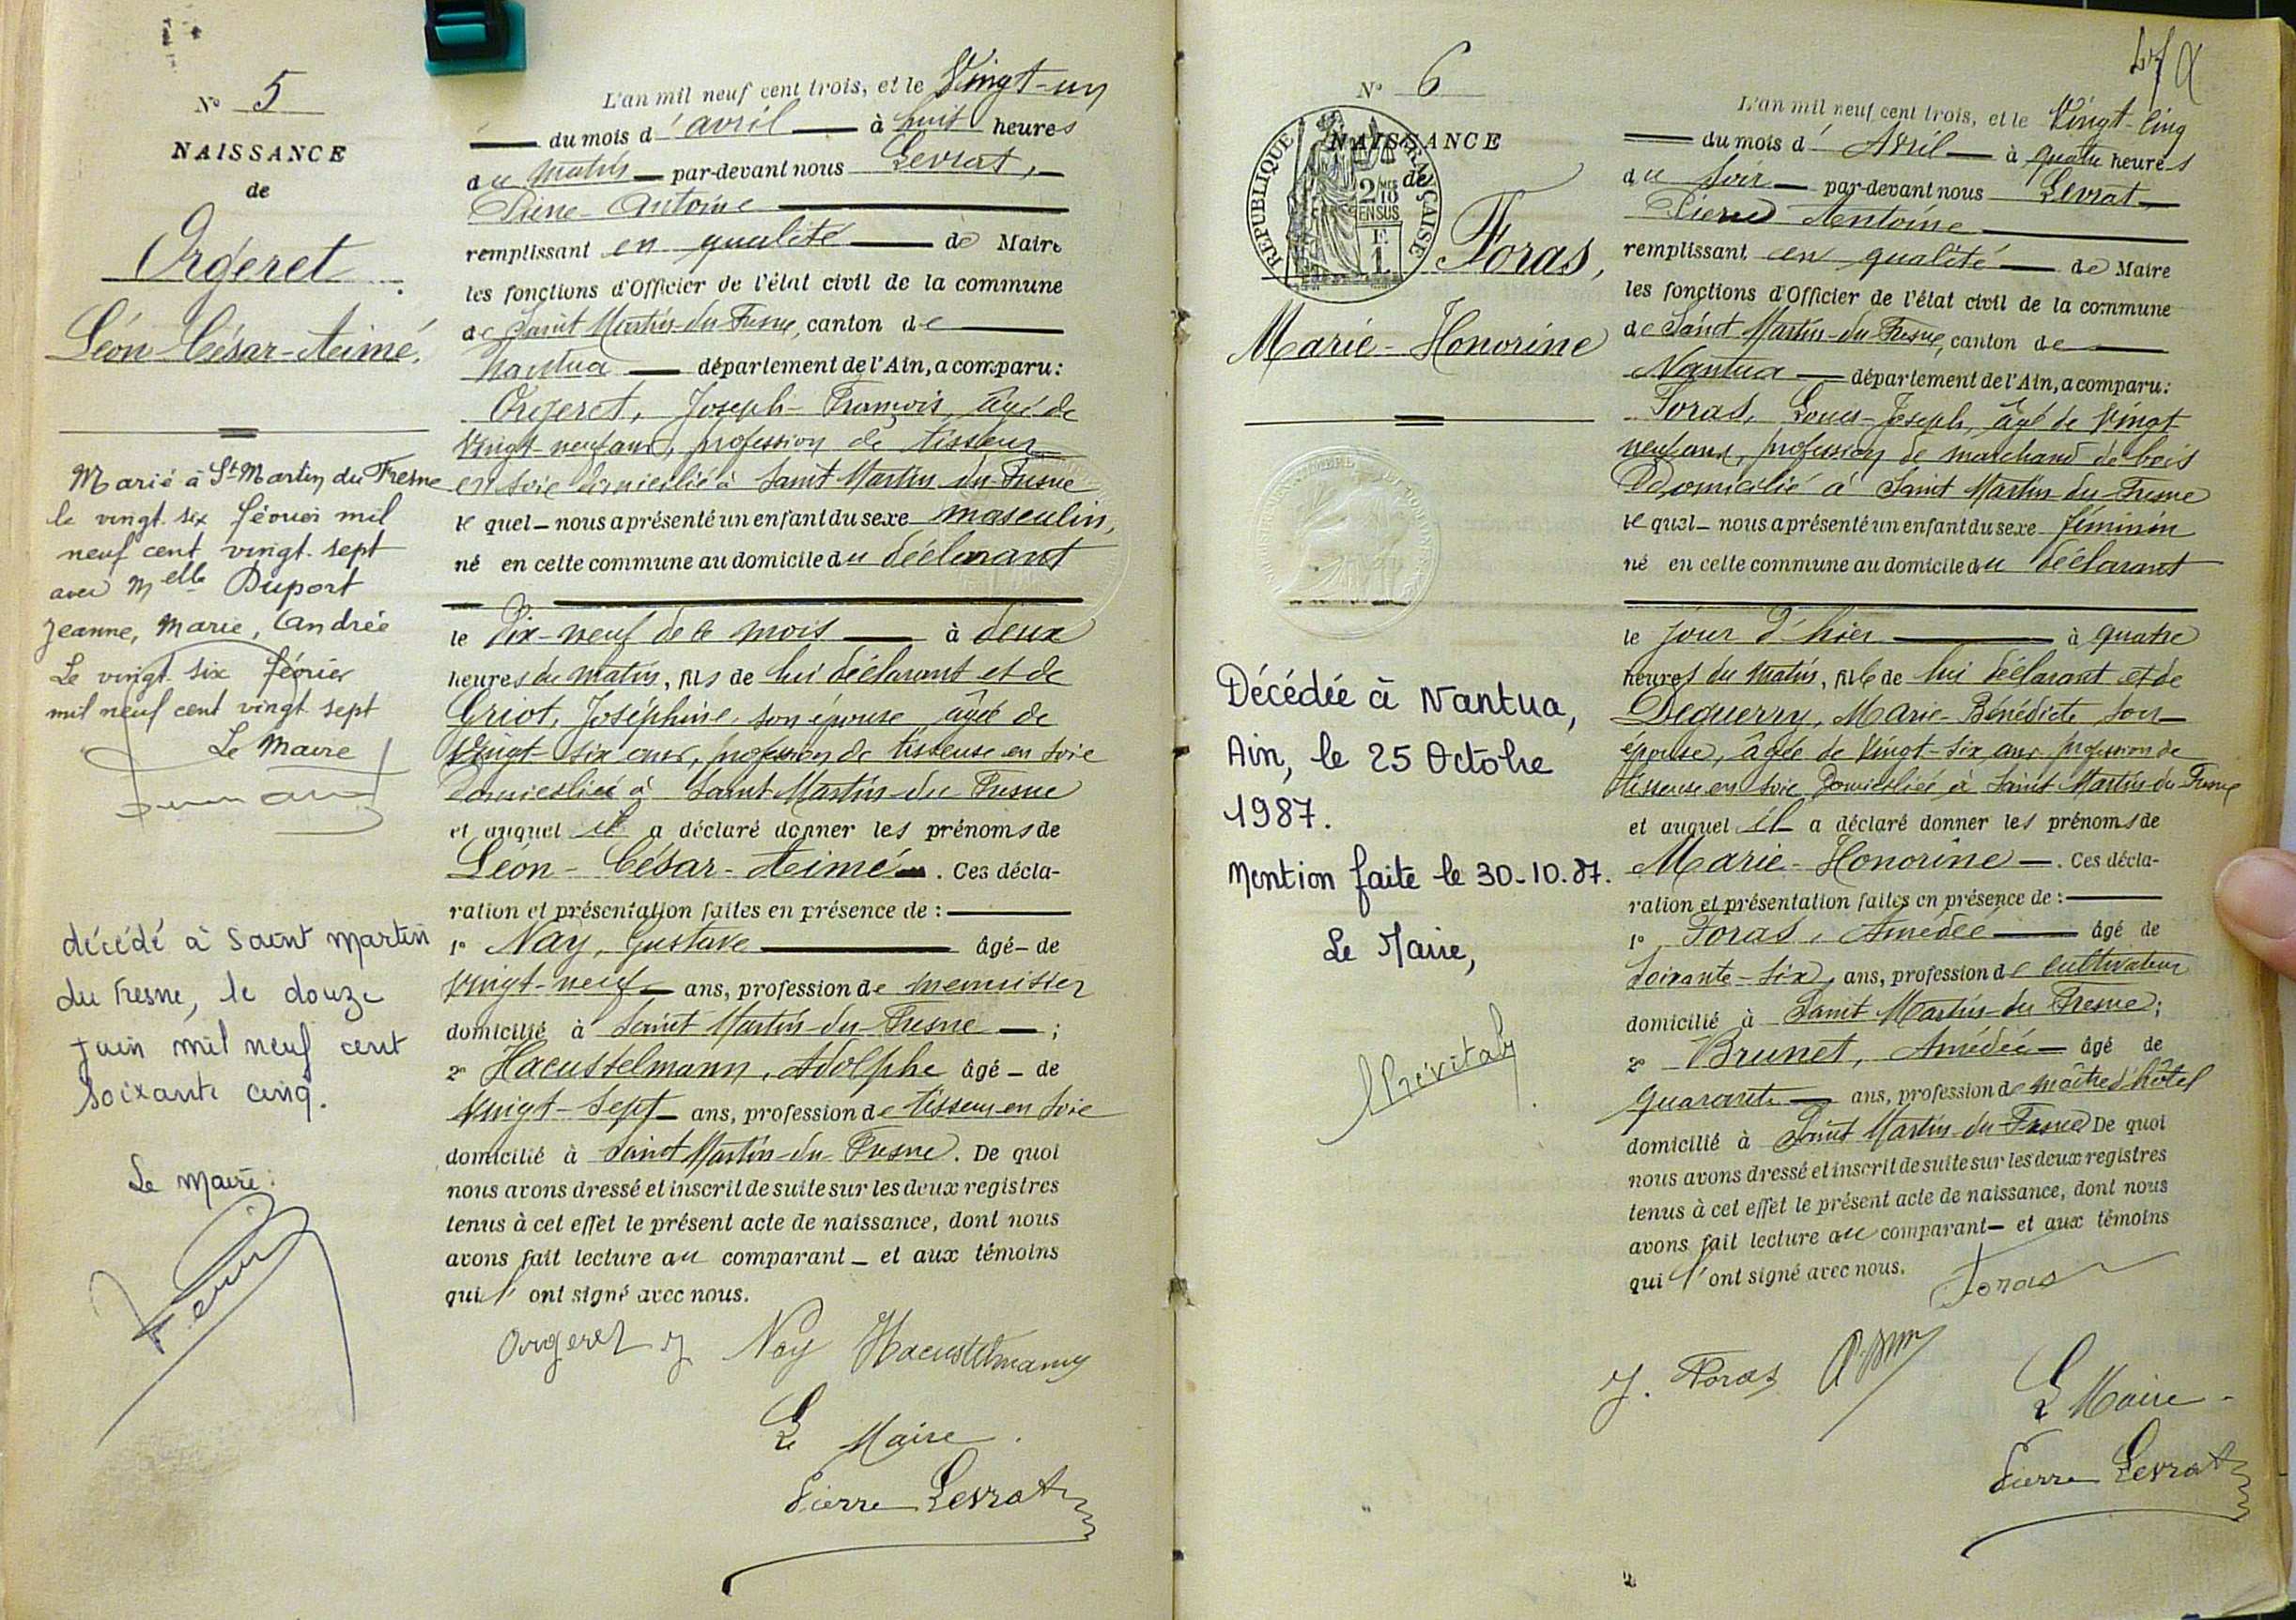 N° 5
NAISSANCE
de
Orgeret
Léon-César-Aimé.
Marié à St Martin du Fresne
le vingt six février mil
neuf cent vingt sept
avec Melle Duport
Jeanne, Marie, Candrée
Le vingt six février
mil neuf cent vingt sept
Le Maire
décédé à Saint Martin
du Fresne, le douze
juin mil neuf cent
soixante cinq.
Le Maire:
L'an mil neuf cent trois, et le Vingt-un
du mois d'avril à huit heures
du matin par-devant nous Levrat,
Pierre-Antoine
remplissant en qualité de Maire
les fonctions d'Officier de l'état civil de la commune
de Saint Martin-du-Fresne, canton de
Nantua département de l'Ain, a comparu:
Orgeret, Joseph-François, âgé de
Vingt-neuf ans, profession de tisseur
en soie domicilié à Saint Martin-du-Fresne
lequel nous a présenté un enfant du sexe masculin,
né en cette commune au domicile du déclarant
le Dix-neuf de ce mois à deux
heures du matin, fils de lui déclarant et de
Griot, Joséphine, son épouse âgée de
Vingt-six ans, profession de tisseuse en soie
Domiciliée à Saint-Martin-du Fresne
et auquel il a déclaré donner les prénoms de
Léon-César-Aimé. Ces décla-
ration et présentation faites en présence de :
1° Nay, Gustave âgé de
vingt-neuf ans, profession de menuisier
domicilié à Saint Martin-du-Fresne ;
2° Haeustelmann, Adolphe âgé de
Vingt-Sept ans, profession de tisseur en Soie
domicilié à Saint Martin-du-Fresne. De quoi
nous avons dressé et inscrit de suite sur les deux registres
tenus à cet effet le présent acte de naissance, dont nous
avons fait lecture au comparant et aux témoins
qui l'ont signé avec nous.
Orgeret J Nay Haeustelmann
Le Maire.
Pierre Levrat
47
N° 6
NAISSANCE
de
REPUBLIQUE FRANÇAISE
2/10 EN SUS
F. 1
Foras,
Marie-Honorine
Décédée à Nantua,
Ain, le 25 Octobre
1987.
Mention faite le 30-10.87.
Le Maire,
L'an mil neuf cent trois, et le Vingt-Cinq
du mois d'Avril à quatre heures
du soir par-devant nous Levrat
Pierre Antoine
remplissant en qualité de Maire
les fonctions d'Officier de l'état civil de la commune
de Saint Martin-du-Fresne, canton de
Nantua département de l'Ain, a comparu:
Foras, Louis-Joseph, âgé de Vingt
neuf ans, profession de marchand de bois
Domicilié à Saint Martin du Fresne
lequel nous a présenté un enfant du sexe féminin
né en cette commune au domicile du déclarant
le jour d'hier à quatre
heures du matin, fille de lui déclarant et de
Deguerry, Marie-Bénédicte son
épouse, âgée de Vingt-six ans profession de
tisseuse en soie Domiciliée à Saint Martin-du-Fresne
et auquel il a déclaré donner les prénoms de
Marie-Honorine. Ces décla-
ration et présentation faites en présence de :
1° Foras, Amédée âgé de
Soixante-six, ans, profession de cultivateur
domicilié à Saint Martin-du Fresne;
2° Brunet, Amédée âgé de
quarante ans, profession de maître d'hôtel
domicilié à Saint Martin-du-Fresne De quoi
nous avons dressé et inscrit de suite sur les deux registres
tenus à cet effet le présent acte de naissance, dont nous
avons fait lecture au comparant et aux témoins
qui l'ont signé avec nous. Foras
J. Foras
Le Maire.
Pierre Levrat